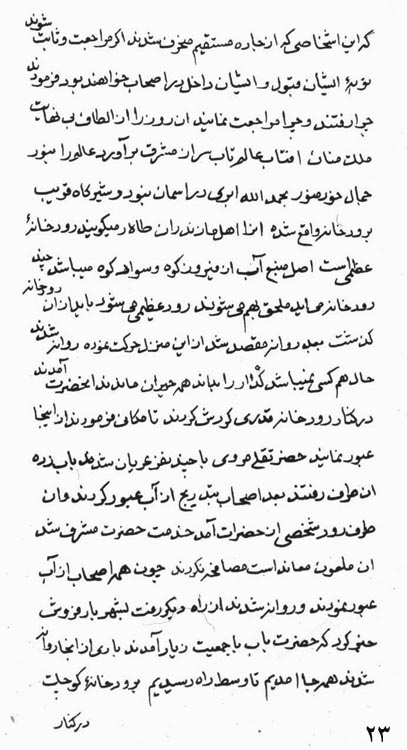 که این اشخاصی که از جاده مستقیم منحرف شدند اگر مراجعت و ثابت شوند
توبهٔ ایشان قبول و ایشان داخل در اصحاب خواهند بود فرمودند
چرا رفتند و چرا مراجعت نمایند ان روز را از الطاف بی نهایت
ملک منان افتاب عالم تاب سر از مشرق بر آورد عالم را منور
جمال خود منور بحمد الله ابری در اسمان نبود و شیرکاه قریب
برودخانه واقع شده انرا اهل مازندران طالار میگویند رودخانهٔ
عظمی است اصل منبع آب از فیروزکوه و سوادکوه میباشد چند رودخانه
رودخانه میاید ملحق بهم می شوند رود عظیمی می شود باید از ان
گذشت بعد روانه مقصد شدند از این منزل حرکت نموده روانه شدند
حال هم کسی نمیباشد گذار را بداند همه حیران ماندند انحضرت آمدند
در کنار رودخانه قدری گردش کردند تا مکانی فرمودند از اینجا
عبور نمایند حضرت تقی هروی با چند نفر عریان شدند بآب زده
ان طرف رفتند بعد اصحاب بتدریج از آب عبور کردند و ان
طرف رود شخصی ان حضرات آمد خدمت حضرت مشرف شد
ان ملعون معاند است مصافحه نکردند چون همه اصحاب از آب
عبور نمودند و روانه شدند از راه دیگر رفت بشهر بار فروش
خبر کرد که حضرت باب با جمعیت زیاد آمدند باری از انجا روانه
شدند همه جا امدیم تا وسط راه رسیدیم برودخانهٔ کوچک
در کنار
۲۳